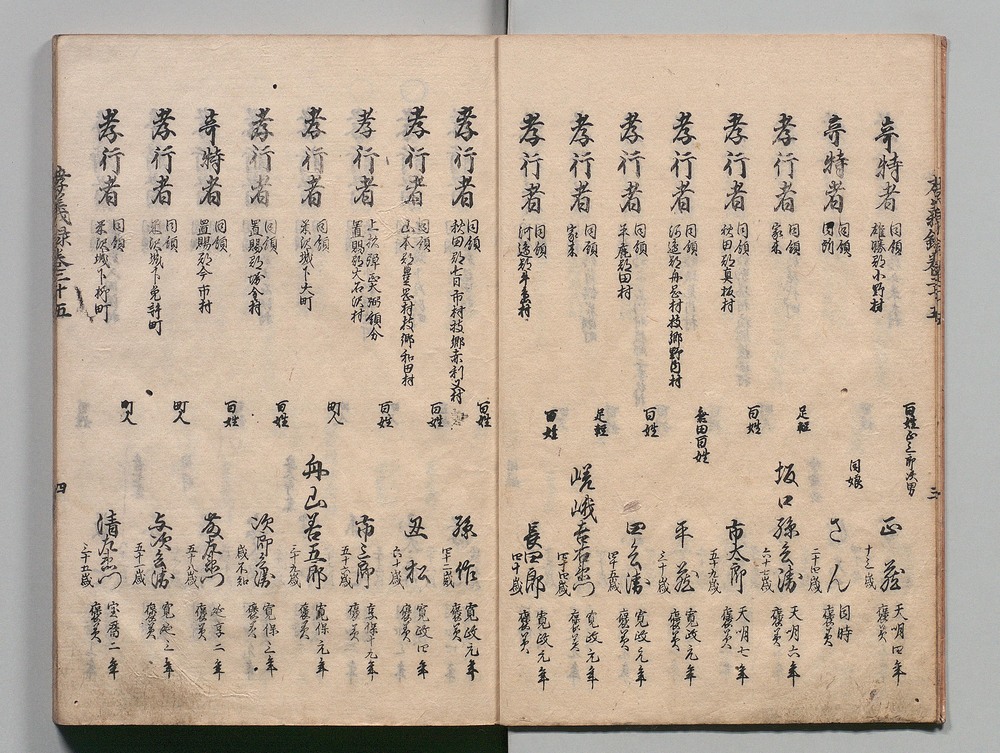 孝義録巻三十五
三
奇特者 同領 雄勝郡小野村 百姓正三郎次男 正蔵 十三歳 天明四年 褒美
奇特者 同領 同所 同娘 さん 二十四歳 同時 褒美
孝行者 同領 家来 足軽 坂口孫兵衛 六十七歳 天明六年 褒美
孝行者 同領 秋田郡真板村 百姓 市太郎 五十九歳 天明七年 褒美
孝行者 同領 河辺郡舟岡村枝郷野内村 無田百姓 平蔵 三十歳 寛政元年 褒美
孝行者 同領 平鹿郡田村 百姓 四兵衛 四十五歳 寛政元年 褒美
孝行者 同領 家来 足軽 嵯峨吉右衛門 四十四歳 寛政元年 褒美
孝行者 同領 河辺郡 百姓 長四郎 四十歳 寛政元年 褒美
孝行者 同領 秋田郡七日市村枝郷赤利又村 百姓 孫作 四十二歳 寛政元年 褒美
孝行者 同領 山本郡豊岡村枝郷和田村 百姓 丑松 六十歳 寛政四年 褒美
孝行者 上杉弾正大弼領分 置賜郡大石沢村 百姓 市之郎 五十歳 享保十年 褒美
孝行者 同領 米沢城下大町 町人 舟山善五郎 三十九歳 寛保元年 褒美
孝行者 同領 置賜郡 百姓 次郎兵衛 歳不知 寛保三年 褒美
奇特者 同領 置賜郡今市村 百姓 五十八歳 延享二年 褒美
孝行者 同領 米沢城下免許町 町人 与次兵衛 五十三歳 寛延三年 褒美
孝行者 同領 米沢城下柳町 町人 清左衛門 三十五歳 宝暦二年 褒美
孝義録巻三十五
四